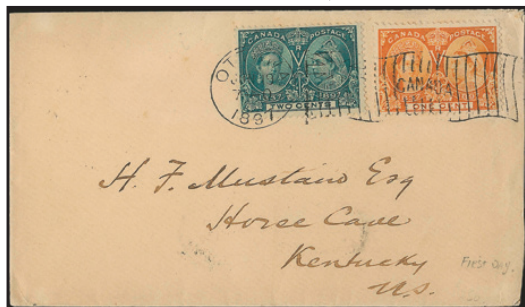 CANADA POSTAGE
TWO CENTS
CANADA POSTAGE
ONE CENT
1897
CANADA
H. F. Mustain Esq
Horse Cave
Kentucky
U.S.
First Day.